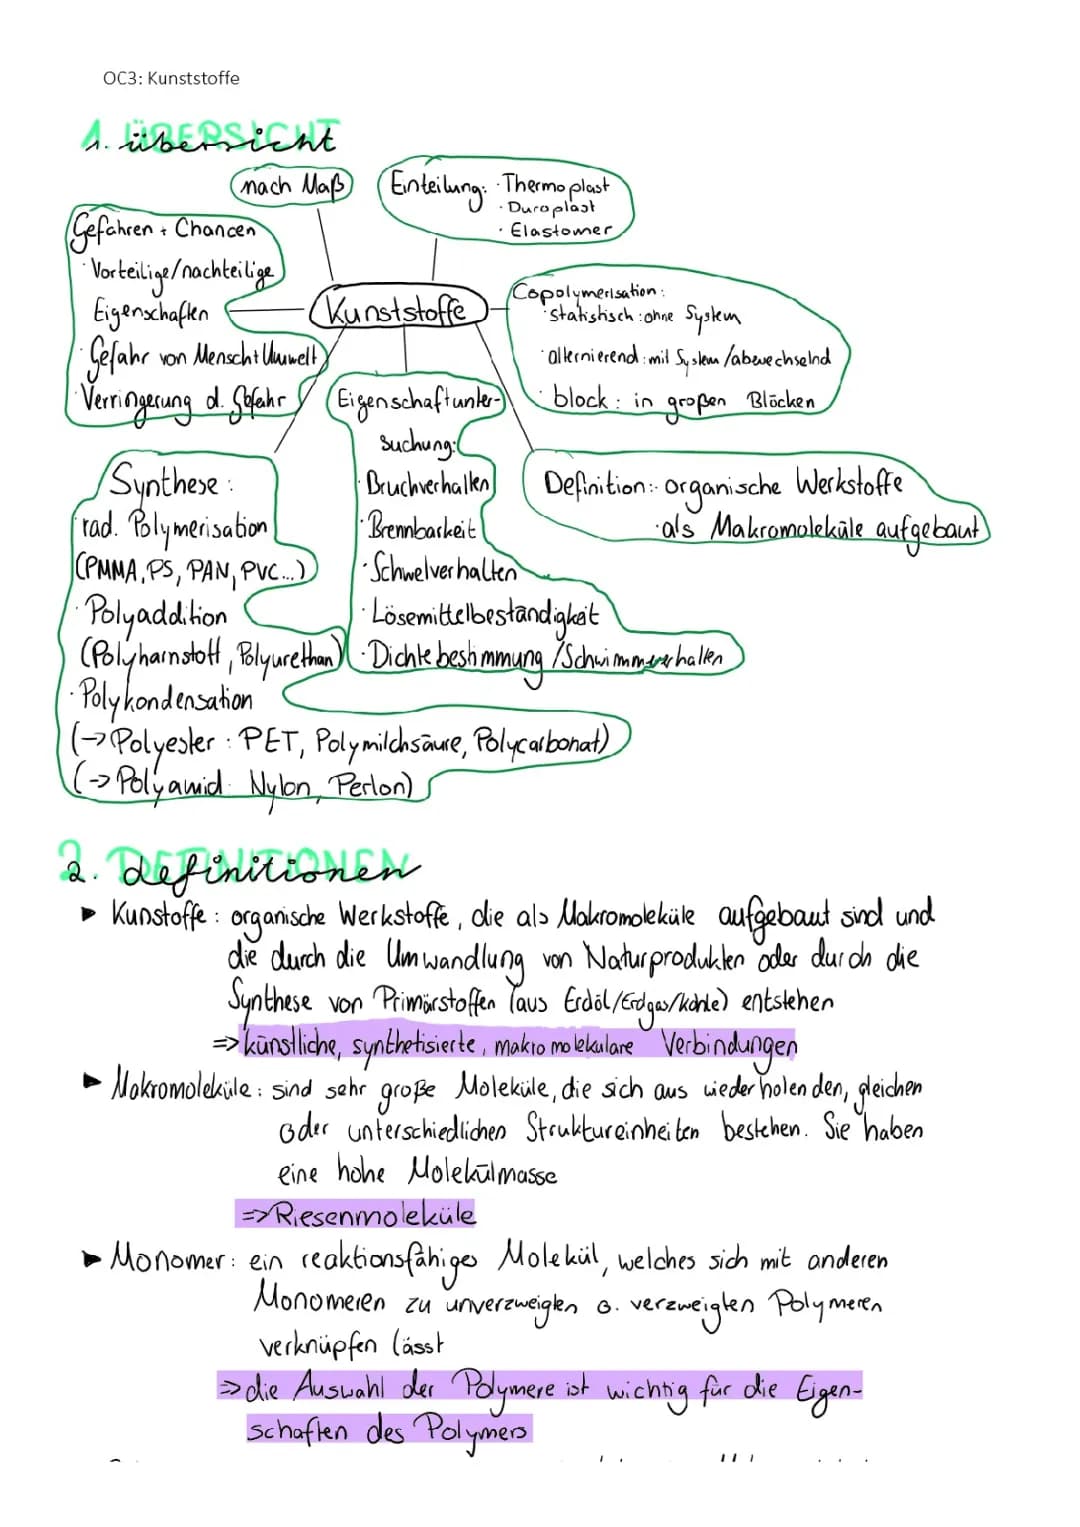 OC3: Kunststoffe
1. ÜBERSICHT
1. übersicht
nach Maß
Einteilung: · Thermoplast
· Duroplast
· Elastomer
Gefahren + Chancen
· Vorteilige/nachteilige
Eigenschaften
· Gefahr von Mensch+Umwelt
· Verringerung d. Gefahr
Kunststoffe
Copolymerisation:
· statistisch: ohne System
· alternierend: mit System/abwechselnd
· block: in großen Blöcken
Eigenschaftunter-
suchung:
· Bruchverhalten
· Brennbarkeit
· Schwelverhalten
· Lösemittelbeständigkeit
· Dichtebestimmung/Schwimmverhalten
Definition: · organische Werkstoffe
· als Makromoleküle aufgebaut
Synthese:
· rad. Polymerisation
(PMMA, PS, PAN, PVC...)
· Polyaddition
(Polyharnstoff, Polyurethan)
· Polykondensation
(→ Polyester: PET, Polymilchsäure, Polycarbonat)
(→ Polyamid: Nylon, Perlon)
2. DEFINITIONEN
2. definitionen
► Kunstoffe: organische Werkstoffe, die als Makromoleküle aufgebaut sind und
die durch die Umwandlung von Naturprodukten oder durch die
Synthese von Primärstoffen (aus Erdöl/Erdgas/Kohle) entstehen
=> künstliche, synthetisierte, makromolekulare Verbindungen
► Makromoleküle: sind sehr große Moleküle, die sich aus wiederholenden, gleichen
oder unterschiedlichen Struktureinheiten bestehen. Sie haben
eine hohe Molekülmasse
=> Riesenmoleküle
► Monomer: ein reaktionsfähiges Molekül, welches sich mit anderen
Monomeren zu unverzweigten o. verzweigten Polymeren
verknüpfen lässt
=> die Auswahl der Polymere ist wichtig für die Eigen-
schaften des Polymers